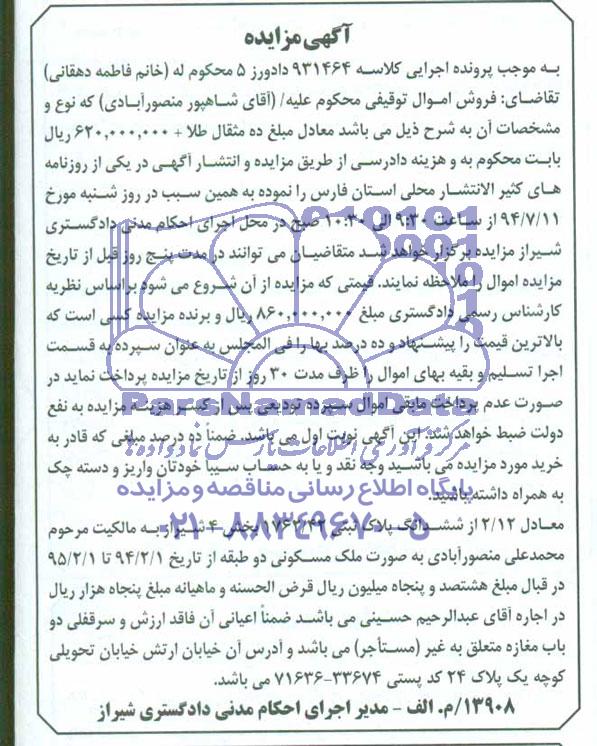 آگهی مزایده
به موجب پرونده اجرایی کلاسه ۹۳۱۴۶۴ دادورز ۵ محکوم له (خانم فاطمه دهقانی)
تقاضای: فروش اموال توقیفی محکوم علیه/ (آقای شاهپور منصورآبادی) که نوع و
مشخصات آن به شرح ذیل می باشد معادل مبلغ ده مثقال طلا + ۶۲۰,۰۰۰,۰۰۰ ریال
بابت محکوم به و هزینه دادرسی از طریق مزایده و انتشار آگهی در یکی از روزنامه
های کثیر الانتشار محلی استان فارس را نموده به همین سبب در روز شنبه مورخ
۹۴/۷/۱۱ از ساعت ۹:۳۰ الی ۱۰:۳۰ صبح در محل اجرای احکام مدنی دادگستری
شیراز مزایده برگزار خواهد شد متقاضیان می توانند در مدت پنج روز قبل از تاریخ
مزایده اموال را ملاحظه نمایند. قیمتی که مزایده از آن شروع می شود براساس نظریه
کارشناس رسمی دادگستری مبلغ ۸۶۰,۰۰۰,۰۰۰ ریال و برنده مزایده کسی است که
بالاترین قیمت را پیشنهاد و ده درصد بها را فی المجلس به عنوان سپرده به قسمت
اجرا تسلیم و بقیه بهای اموال را ظرف مدت ۳۰ روز از تاریخ مزایده پرداخت نماید در
صورت عدم پرداخت مابقی اموال سپرده تودیعی پس از کسر هزینه مزایده به نفع
دولت ضبط خواهد شد. این آگهی نوبت اول می باشد. ضمناً ده درصد مبلغی که قادر به
خرید مورد مزایده می باشید وجه نقد و یا به حساب سیبا خودتان واریز و دسته چک
به همراه داشته باشید.
معادل ۲/۱۲ از ششدانگ پلاک ثبتی ۱۷۶۲/۴۲ بخش ۴ شیراز به مالکیت مرحوم
محمدعلی منصورآبادی به صورت ملک مسکونی دو طبقه از تاریخ ۹۴/۲/۱ تا ۹۵/۲/۱
در قبال مبلغ هشتصد و پنجاه میلیون ریال قرض الحسنه و ماهیانه مبلغ پنجاه هزار ریال
در اجاره آقای عبدالرحیم حسینی می باشد ضمناً اعیانی آن فاقد ارزش و سرقفلی دو
باب مغازه متعلق به غیر (مستأجر) می باشد و آدرس آن خیابان ارتش خیابان تحویلی
کوچه یک پلاک ۲۴ کد پستی ۳۳۶۷۴-۷۱۶۳۶ می باشد.
۱۳۹۰۸/م. الف - مدیر اجرای احکام مدنی دادگستری شیراز
ParsNamadData
مرکز فرآوری اطلاعات پارس نماد داده ها
پایگاه اطلاع رسانی مناقصه و مزایده
۰۲۱-۸۸۳۴۹۶۷۰-۵